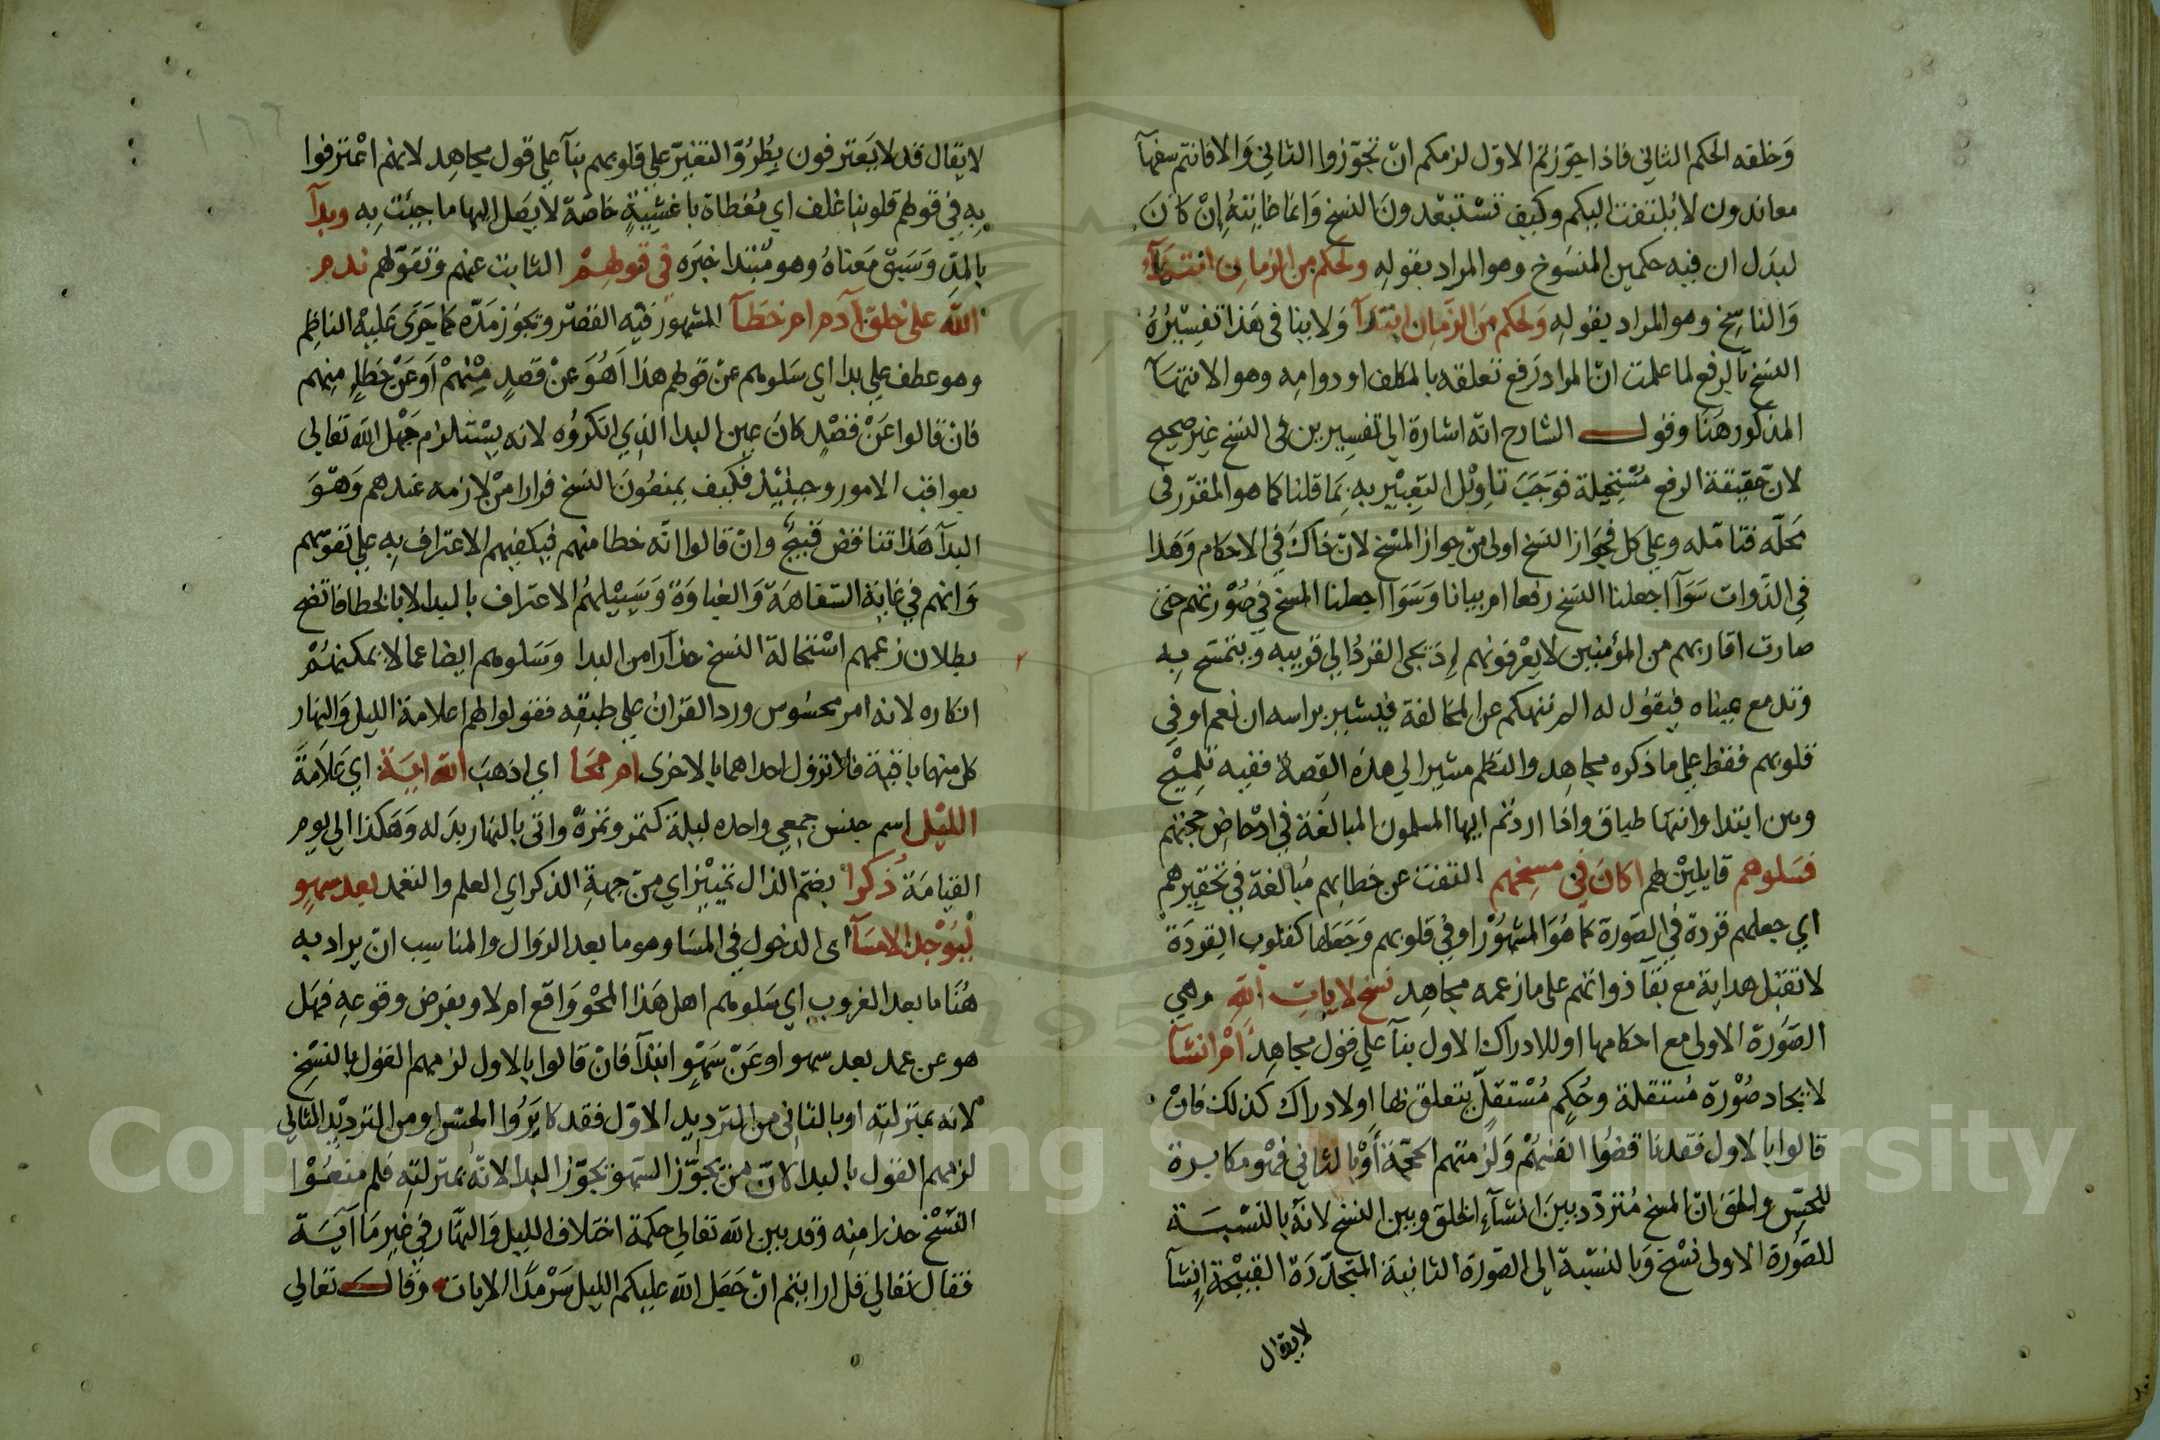 وَخلقه الحكم الثاني فاذا جوّزتم الاوّل لزمكم انْ تجوّزوا الثاني وَالا فانتم سفهآ
معاندون لا يُلتفت اليكم وكيف تسْتبعْدونَ النسخ وَانما غايتهُ اِنْ كانَ
ليدَل ان فيه حكمين المنسَوخ وهو المراد بقولهِ ولحكم من الزمانِ انتهَآءُ
وَالناسِخ وهو المراد بقوله وَلحكم منَ الزمَانِ ابتدَآ وَلا ينافي هَذا تفسِيْرُهُ
النسَخ بَالرفع لما علمت انّ المراد رَفع تعلقه بالمكلف او دوامه وهو الانتهآ
المذكور هَنَا وقول الشارح انه اشارة الي تفسِيرين في النسَخ غيرصحيح
لانّ حَقِيْقة الرفع مسْتحِيلة فوَجَبَ تاوِيْل التعِبيْر بهِ بمَا قلنا كما هو المقرّر في
محَلّه فتامّله وعلي كل فجَوَاز النسَخ اولي منْ جواز المسْخ لانّ ذاكَ في الاحكام وَهذا
في الذّوات سَوَآ اجعلنا النسَخ رفعا ام بيانا وَسَوَآ اجعلنا المسخ في صُوْرتهم حتى
صارت اقاربهم من المؤمنين لا يَعْرفونهم اِذ يجى القردُ الي قريبه ويتمسَح بِه
وتدمع عيناه فيقوُل له الم ننهكم عن المخالفة فيُشير براسه ان نعم او في
قلوبهم فقط علي ما ذكره مجاهد والنظم مشير الي هذه القصة ففيه تلِميْح
وبين ابتدا وانتها طباق واذا اردتم ايها المسلمون المبالغة في ادْحاض حجتهم
فسَلوهم قايلِيْن لهم اكانَ في مسخهم التفت عن خطابهم مبالغة في تحقيرهم
اي جعلهم قردة في الصّورة كما هُوَ المشهُوْر او في قلوبهم وَجَعَلها كقلوب القِردَة
لا تقبَل هداية مع بقَآ ذواتهم على ما زعمه مجاهد نسخ لايات الله وهي
الصّورة الاولى مع احكامها او للادراك الاول بنآ علي قول مجاهِد امْ انشآ
لايجاد صُوْرة مُستقلة وحُكم مُسْتقلّ يتعلق بها او لادراك كذلك فانْ
قالوا بالاول فقد ناقضوُا انفسَهُمْ وَلزمتهم الحجّة أوْ بالثاني فهو مكابرة
للحِسّ والحق انّ المسخ مُتردّد بين انشآءِ الخلق وبين النسخ لانه بالنسْبَة
للصّورة الاولى نسْخ وَبالنسْبة الى الصّورة الثانية المتجدّدَة القبيْحة اِنشآ
لايقال
لايقال قد لا يَعترفون بِطُرُوّ التغيّر علي قلوبهم بنآ علي قول مجاهِد لانهم اعْترفوا
بهِ في قولهم قلوبنا غلف اي مُغطاة باغشِيَةٍ خاصّة لا يصَل اليها ما جيئت به وبدآ
بالمدّ وَسَبَق مَعناهُ وهو مُبتدا خبَره في قولهِمْ الثابت عنهم وتقوّلهم ندم
اللّه على خلق آدم ام خطآ المشهور فيه القصْر ويجوُز مَدّه كما جَرَى عَليه الناظم
وهو عطف علي بدا اي سَلوهم عنْ قولهم هذا اَهُوَ عنْ قصدٍ مِنْهُمْ اَو عَنْ خطاءٍ منهم
فانْ قالوا عَنْ قصْدٍ كانَ عين البدا الذي انكروُه لانه يسْتلزم جَهْل الله تعالى
بعواقب الامور وحِيْنئِذ فكيف يمنعُونَ النسخ فرارا منْ لازمه عندهم وَهْوَ
البدآ هَذا تناقض قبيحٌ وانْ قالوا انّه خطا منهم فيكفيهم الاعتراف بِه على تقوّلهم
وَانهم في غاية السّفاهَة وَالغباوَة وَسَبِيْلهمُ الاعتراف بالبدا لا بالخطا فاتضح
بطلان زعمهم اسْتحالة النسخ حذارًا من البدا وسَلوهم ايضا عما لا يمكنهمْ
انكاره لانه امر محسُوس ورد القران علي طبقه فقولوا لهم اعلامة الليل وَالنهار
كل منهما باقية فلا تزول احداهما بالاخرى ام محَا اي اذهَبَ الله ايَة اي عَلامَة
الليْل اسم جنس جمعي واحده ليلة كتمر وتمرة واتي بالنهار بدَله وَهَكذا الي يوم
القيامَة ذُكرا بضمّ الذال تميِيْز اي منْ جهةِ الذكر اي العلم والتعمد بعد سهوٍ
لِيُوْجِد الامسَآ اى الدخول في المسَا وهو ما بعد الزوَال والمناسب انْ يراد به
هُنَا ما بعد الغروب اي سَلوهم اهل هَذا المحْو وَاقع ام لا وبفرض وقوعهِ فهَل
هو عن عمد بعد سهو او عَنْ سَهْوٍ ابتدَآ فانْ قالوا بالاول لزمهم القول بالنسْخ
لانه بمنزلتِه او بالثاني من الترديد الاوّل فقد كابَرُوا الحِسّ او من الترديْد الثاني
لزمهم القول بالبدا لانّ منْ يجَوّز السّهو يجوّز البدا لانّه بمنزلتِه فلم منعُوْا
النسْخ حذرا منه وقد بين الله تعالي حكمة اختلاف الليل وَالنهَار في غير مَا آيَة
فقال تعالي قل ارايتم انْ جَعَل الله عليكم الليل سَرْمدًا الايات وقال تعالي
Copyright © King Saud University
1957